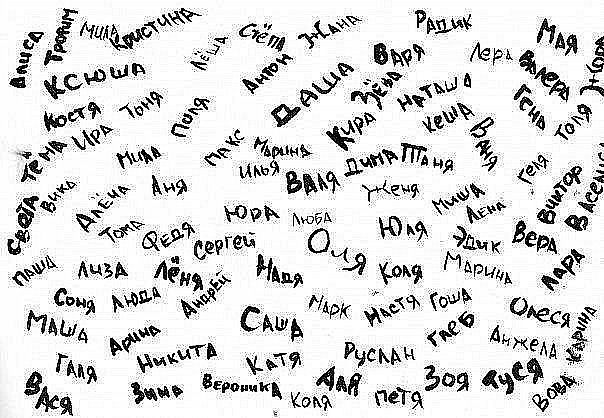 Алиса
Трофим
Мила
Кристина
Лёша
Стёпа
Жана
Радик
Варя
Лера
Валера
Мая
Жора
Ксюша
Антон
Даша
Зёва
Наташа
Кеша
Гена
Толя
Костя
Тоня
Поля
Тёма
Ира
Макс
Марина
Кира
Ваня
Мила
Илья
Валя
Дима
Таня
Геля
Виктор
Василиса
Света
Вика
Алёна
Аня
Женя
Миша
Лена
Тома
Федя
Юра
Люба
Юля
Эдик
Вера
Сергей
Оля
Паша
Лиза
Лёня
Надя
Коля
Марина
Лара
Соня
Люда
Андрей
Марк
Настя
Гоша
Олеся
Маша
Арина
Саша
Глеб
Анжела
Карина
Галя
Никита
Катя
Руслан
Вася
Зина
Вероника
Коля
Аля
Петя
Зоя
Дуся
Вова